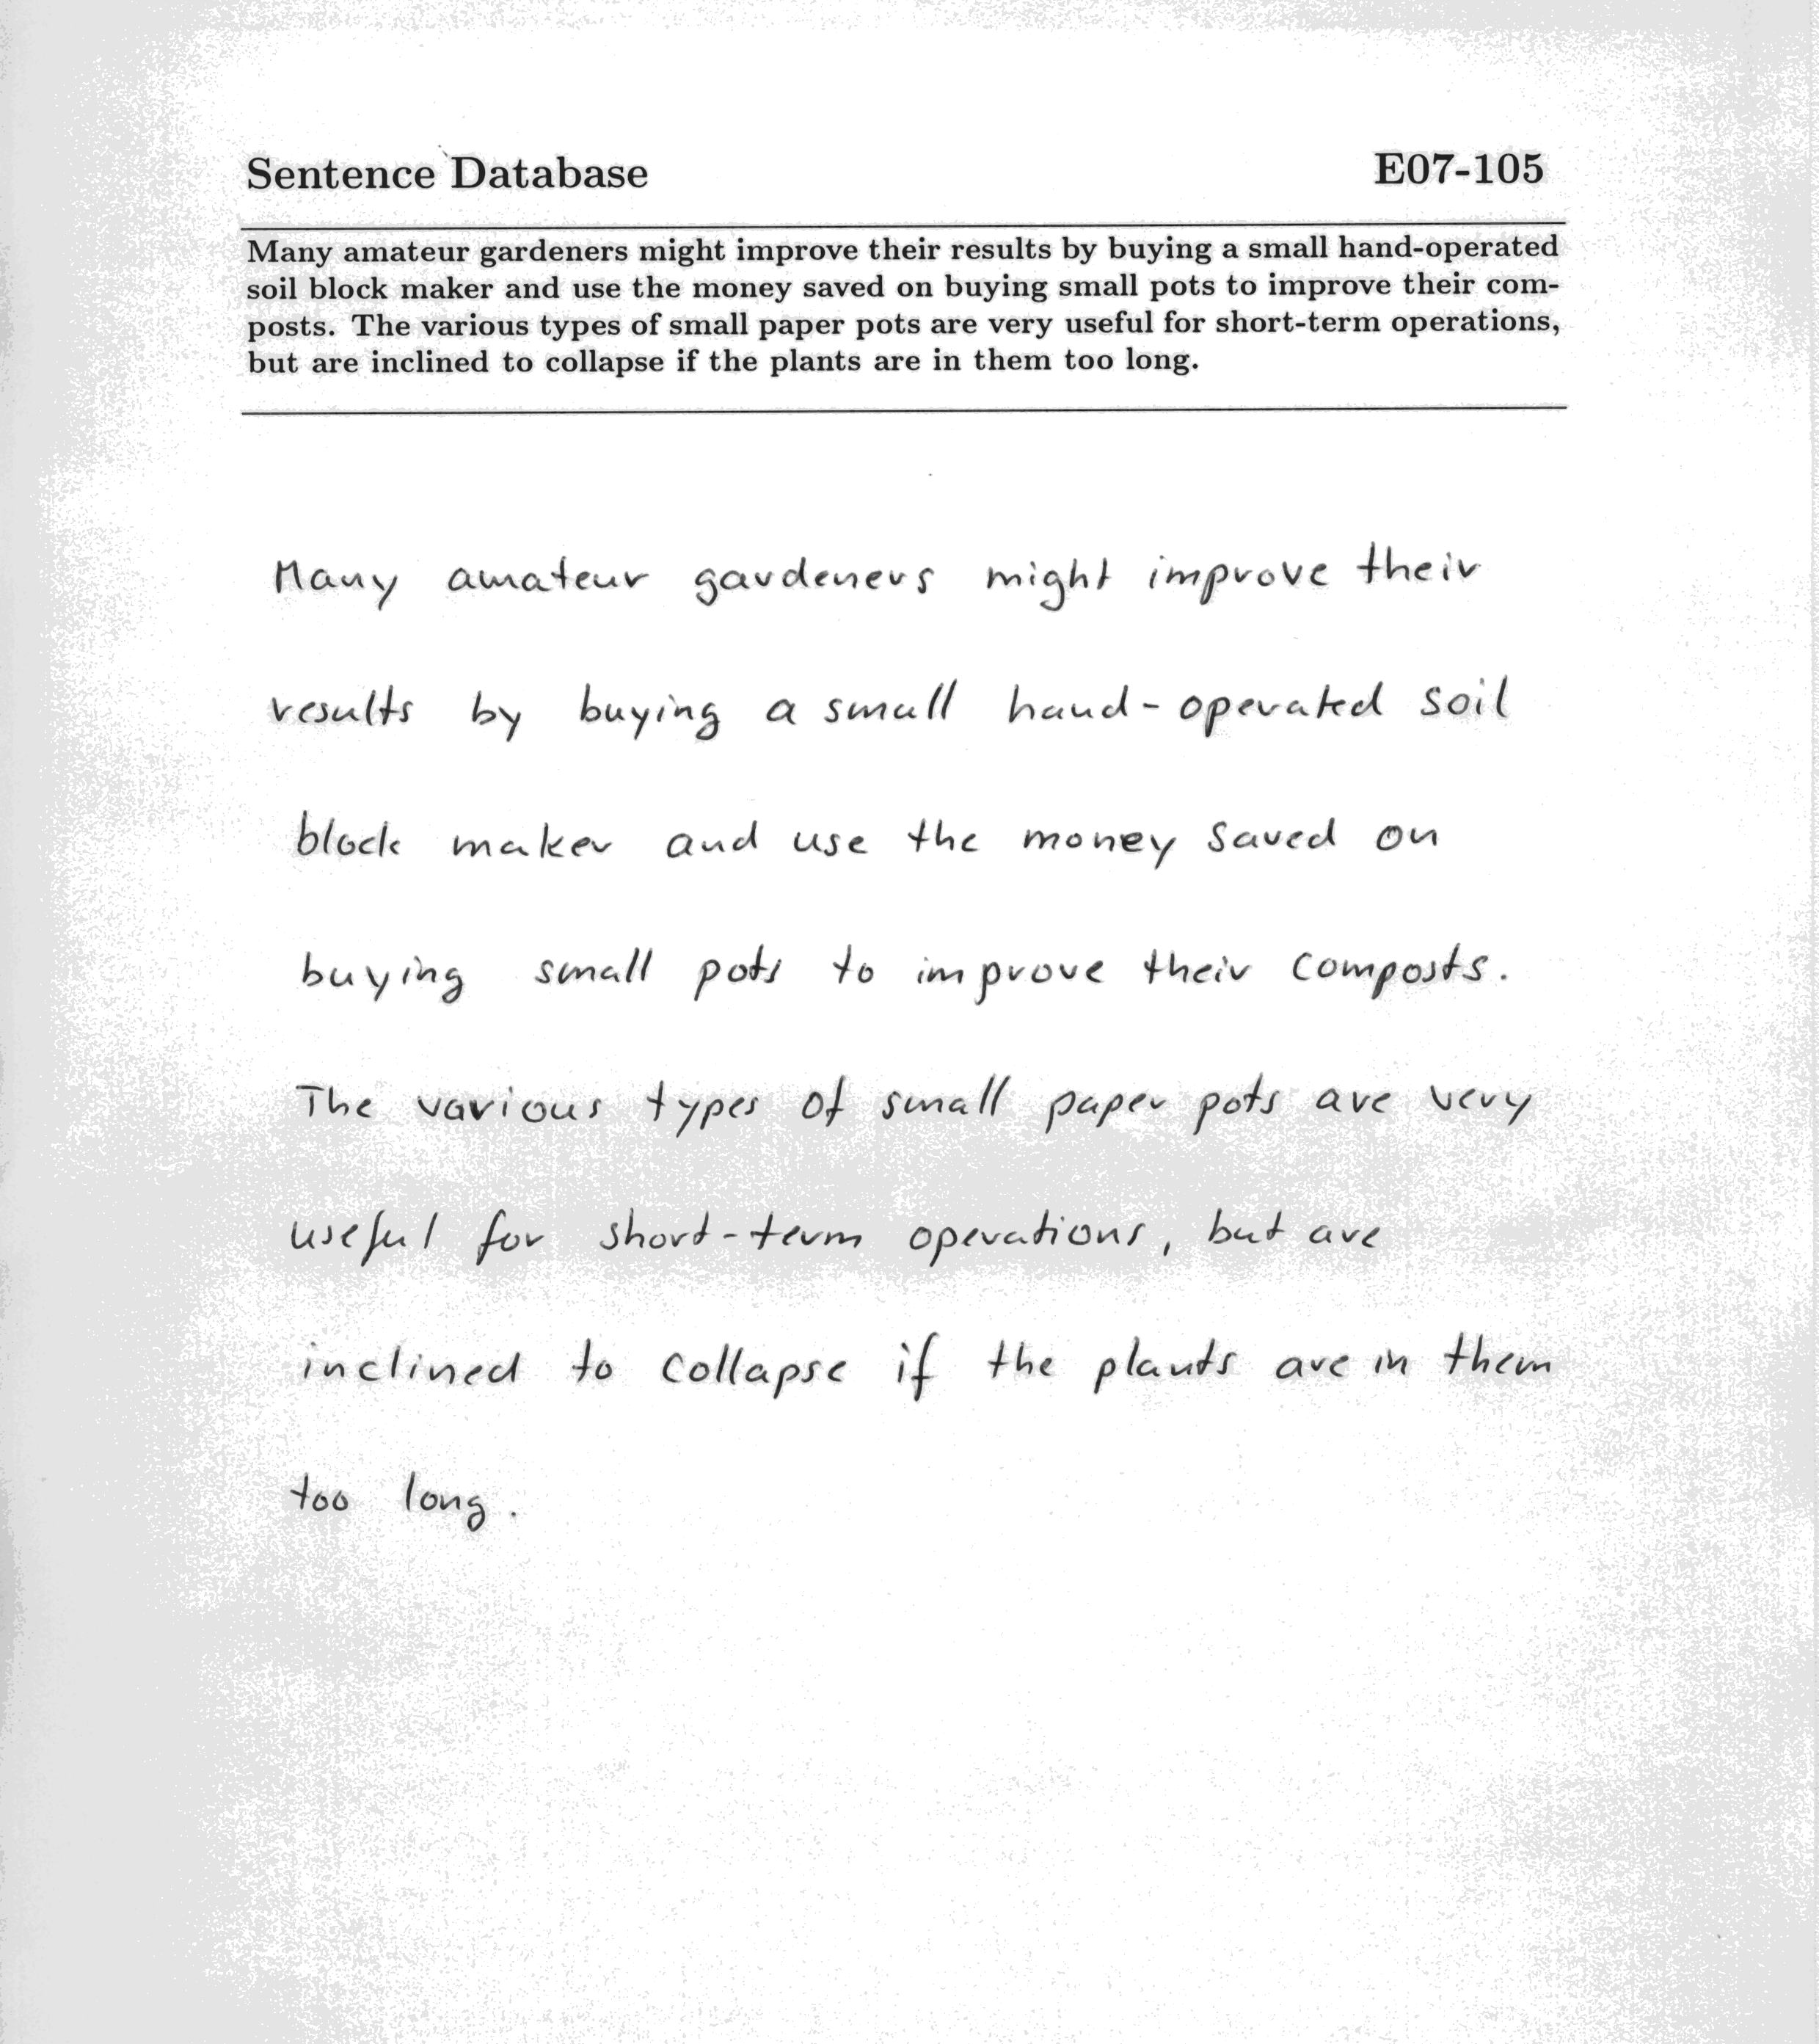 Sentence Database E07-105
Many amateur gardeners might improve their results by buying a small hand-operated
soil block maker and use the money saved on buying small pots to improve their com-
posts. The various types of small paper pots are very useful for short-term operations,
but are inclined to collapse if the plants are in them too long.
Many amateur gardeners might improve their
results by buying a small hand-operated soil
block maker and use the money saved on
buying small pots to improve their composts.
The various types of small paper pots are very
useful for short-term operations, but are
inclined to collapse if the plants are in them
too long.